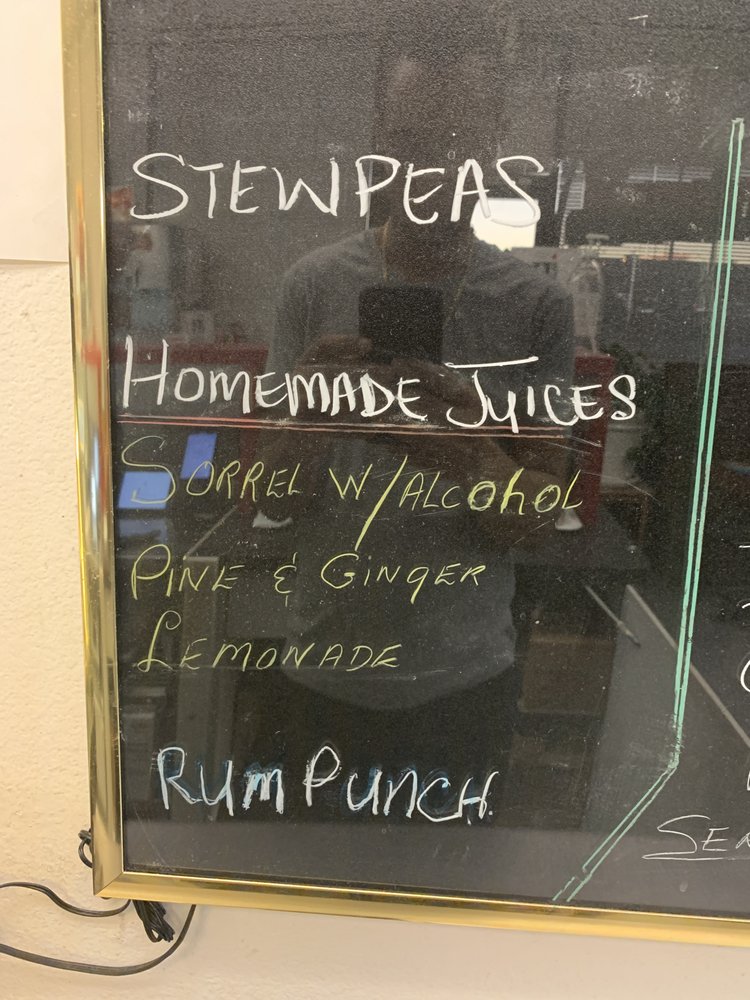 STEWPEAS
HOMEMADE JUICES
SORREL W/ALCOHOL
PINE & GINGER
LEMONADE
RUM PUNCH